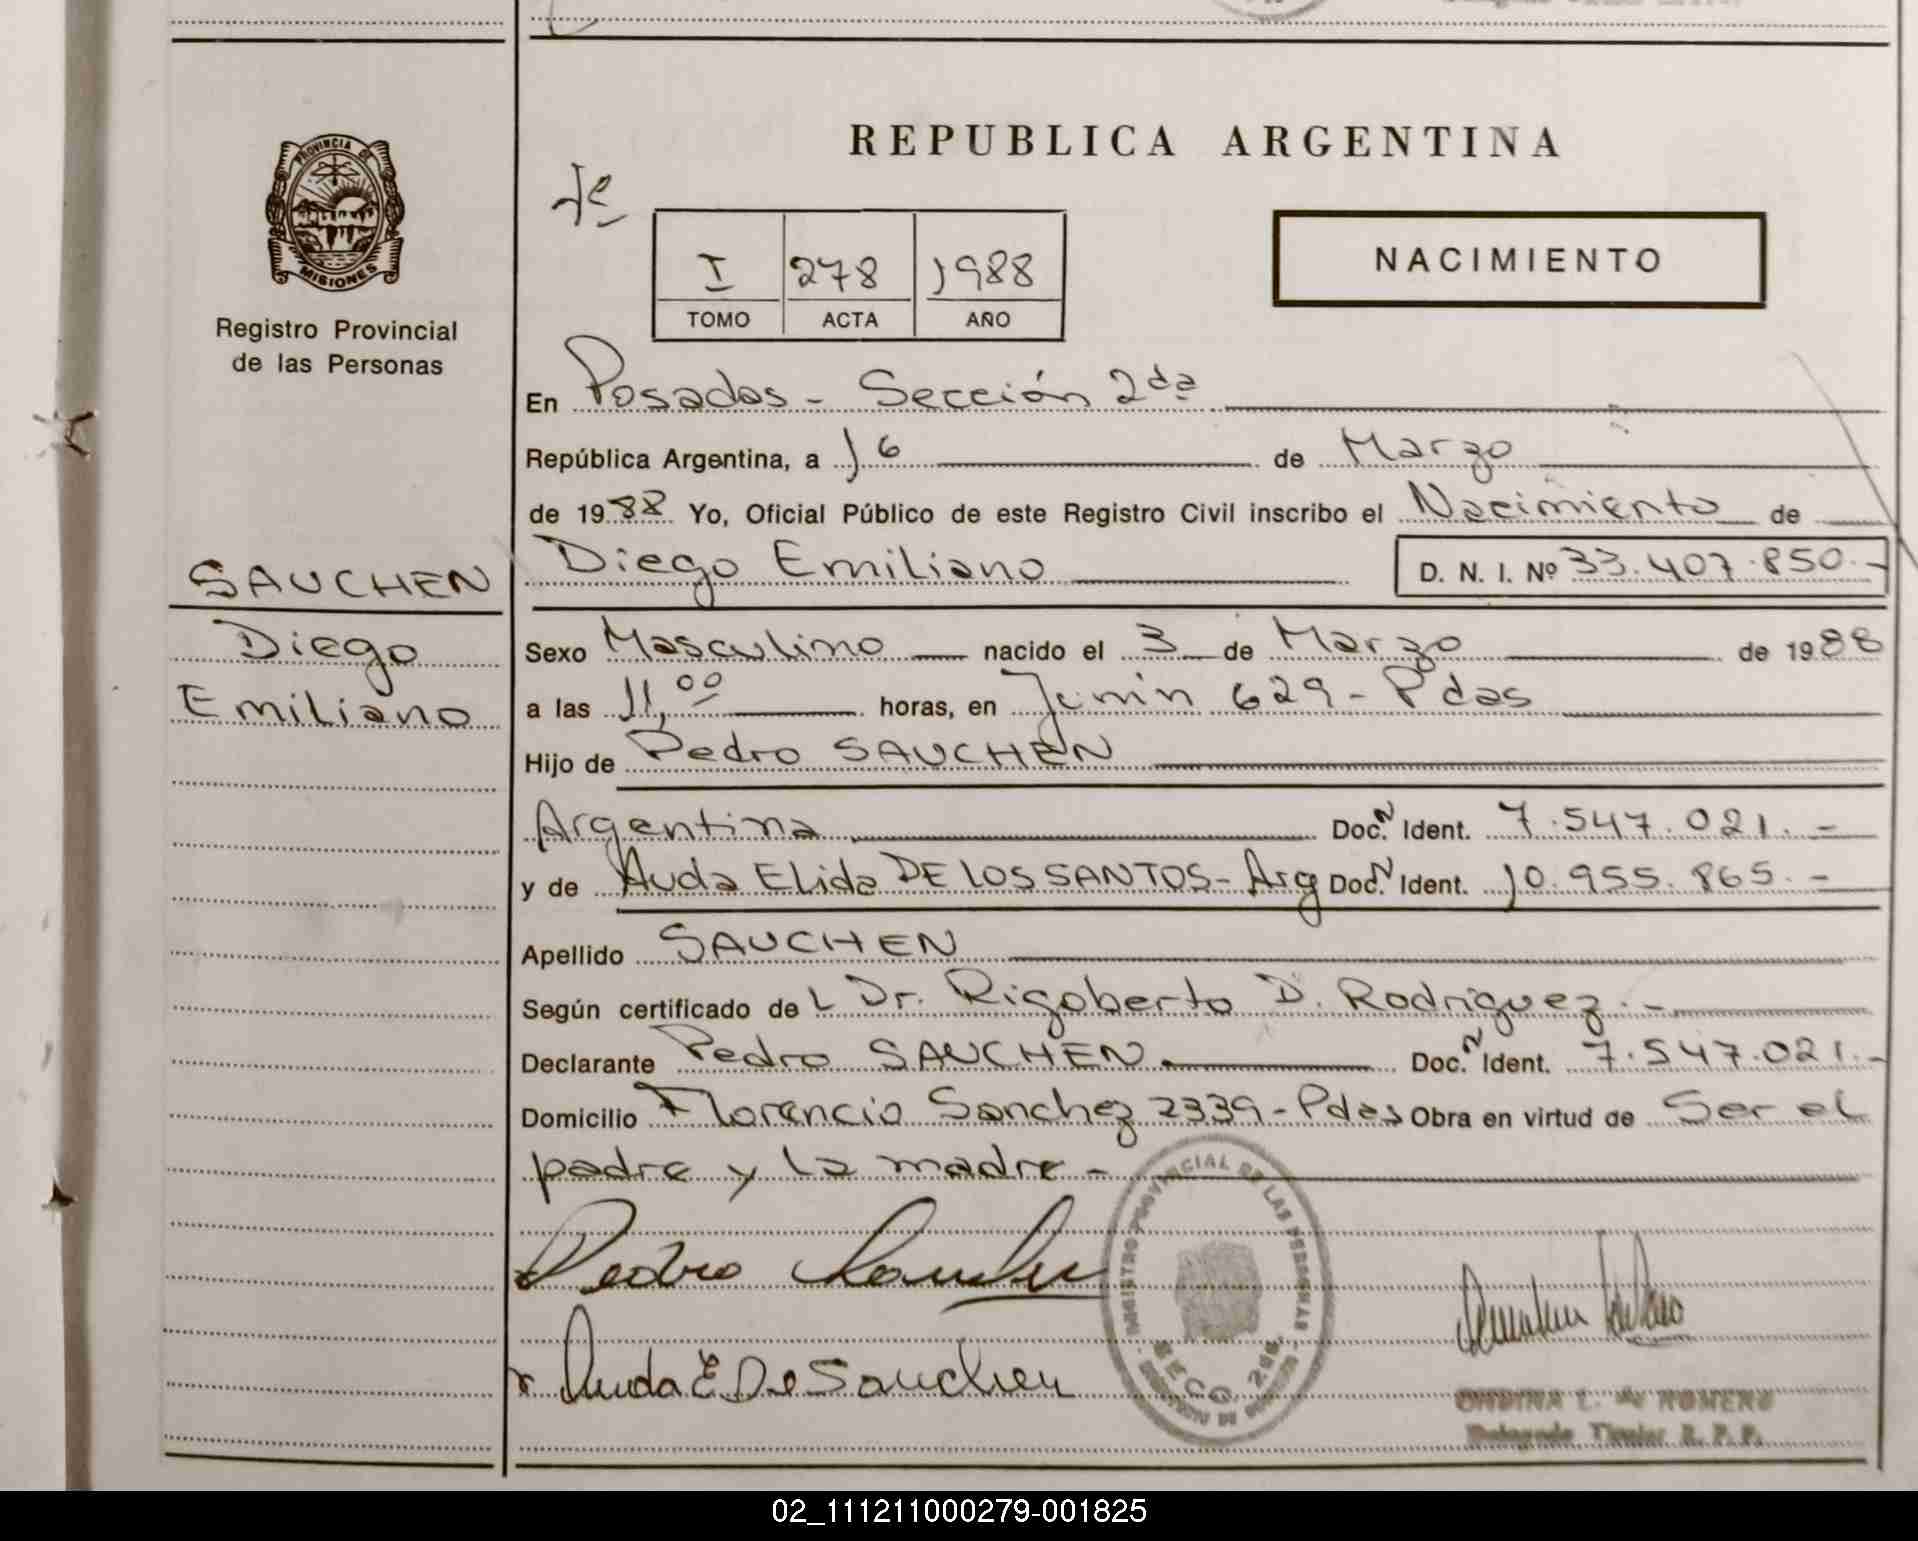 PROVINCIA DE
MISIONES
Registro Provincial
de las Personas
SAUCHEN
Diego
Emiliano
REPUBLICA ARGENTINA
I 278 1988
TOMO ACTA AÑO
NACIMIENTO
En Posadas - Sección 2da
República Argentina, a 16 de Marzo
de 1988 Yo, Oficial Público de este Registro Civil inscribo el Nacimiento de
Diego Emiliano D. N. I. Nº 33.407.850.-
Sexo Masculino nacido el 3 de Marzo de 1988
a las 11,00 horas, en Junin 629 - Pdas
Hijo de Pedro SAUCHEN
Argentina Doc. N Ident. 7.547.021.-
y de Auda Elida DE LOS SANTOS - Arg Doc. N Ident. 10.955.865.-
Apellido SAUCHEN
Según certificado de L Dr. Rigoberto D. Rodriguez.-
Declarante Pedro SAUCHEN. Doc. N Ident. 7.547.021.-
Domicilio Florencio Sanchez 2339 - Pdas Obra en virtud de Ser el
padre y la madre -
Pedro Sauchen
Auda E De Sauchen
PROVINCIAL DE LAS PERSONAS
SECC. 2da.
ONDINA L. de ROMERO
Delegada Titular R. P. P.
02_111211000279-001825